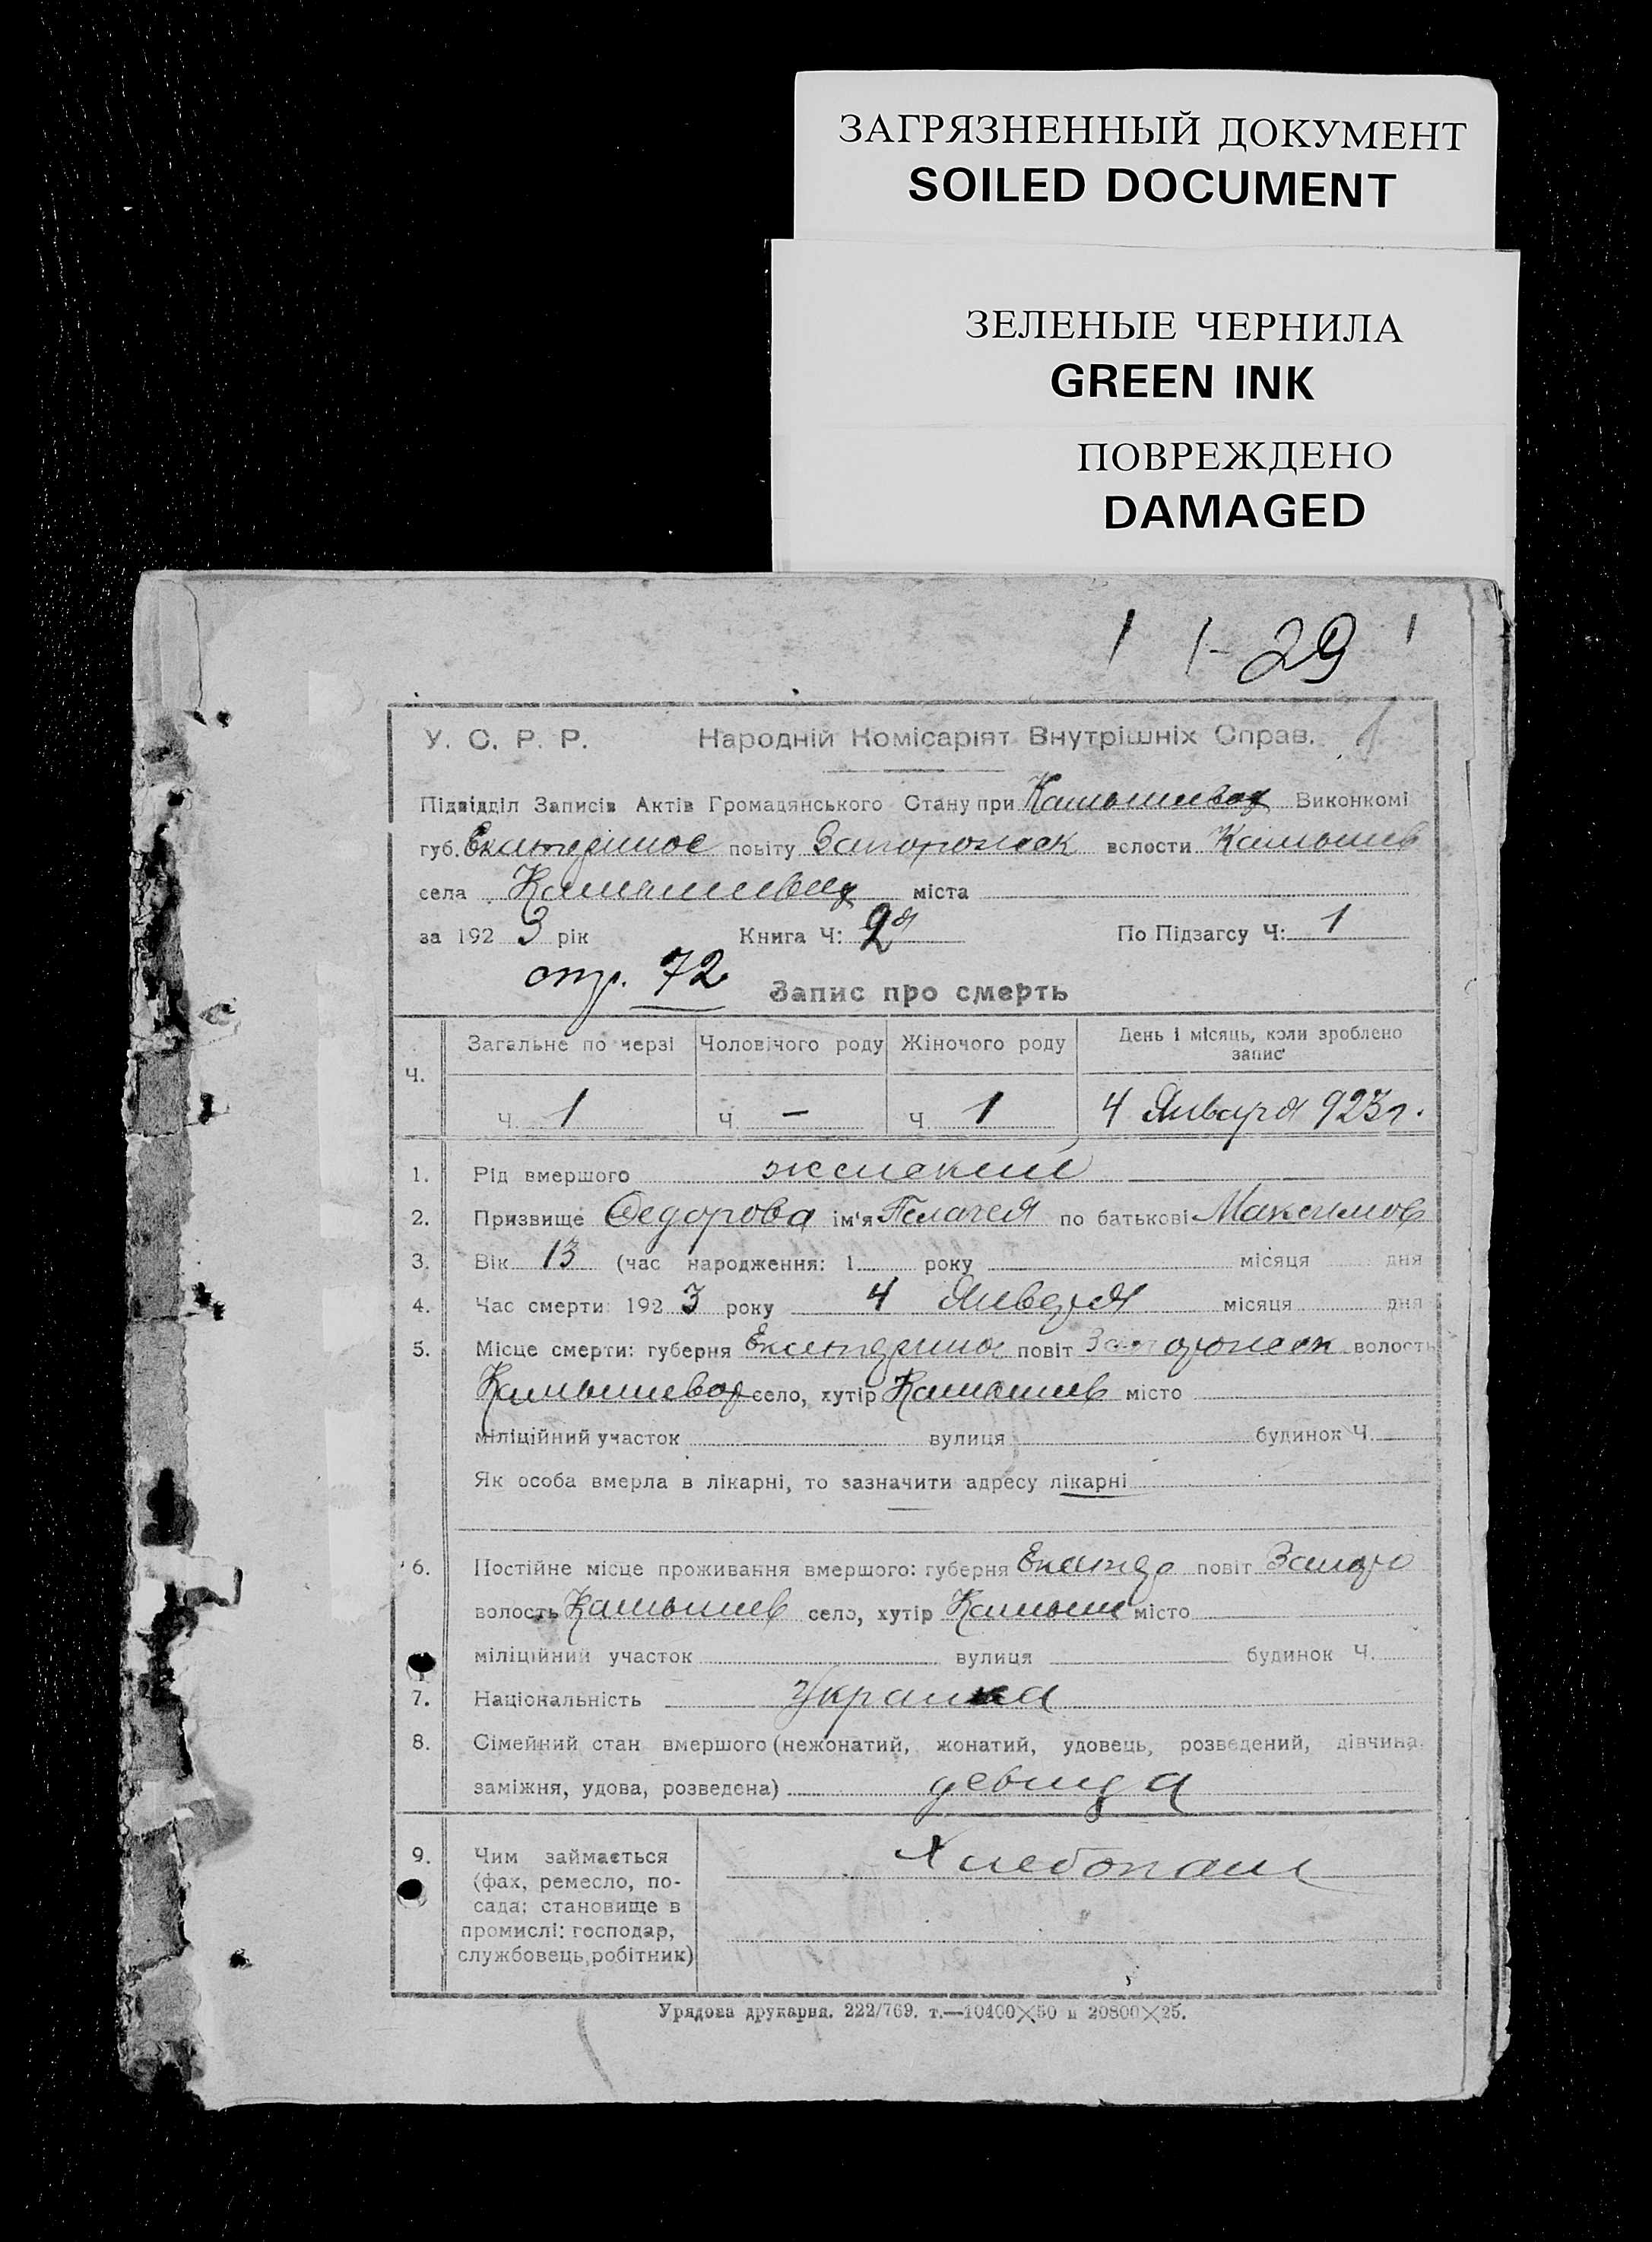 ЗАГРЯЗНЕННЫЙ ДОКУМЕНТ
SOILED DOCUMENT
ЗЕЛЕНЫЕ ЧЕРНИЛА
GREEN INK
ПОВРЕЖДЕНО
DAMAGED
1 1-29 1
У. С. Р. Р. Народній Комісаріят Внутрішніх Справ. 1
Підвідділ Записів Актів Громадянського Стану при Камышеват Виконкомі
губ. Екатеринос повіту Запорожск волости Камышев
села міста
за 1923 рік Книга Ч: 2я По Підзагсу Ч: 1
стр. 72
Запис про смерть
Ч. Загальне по черзі Чоловічого роду Жіночого роду День і місяць, коли зроблено запис
Ч. 1 Ч. — Ч. 1 4 Января 923 г.
1. Рід вмершого женский
2. Призвище Федорова ім'я Пелагея по батькові Максимов
3. Вік 13 (час народження: 1 року місяця дня
4. Час смерти: 1923 року 4 Января місяця дня
5. Місце смерти: губерня Екатерино повіт Запорожск волость
Камышеват село, хутір Камышев місто
міліційний участок вулиця будинок Ч.
Як особа вмерла в лікарні, то зазначити адресу лікарні
6. Постійне місце проживання вмершого: губерня Екатер повіт Запоро
волость Камышев село, хутір Камыш місто
міліційний участок вулиця будинок Ч.
7. Національність Украинка
8. Сімейний стан вмершого (нежонатий, жонатий, удовець, розведений, дівчина,
заміжня, удова, розведена) девица
9. Чим займається Хлебопаш
(фах, ремесло, по-
сада: становище в
промислі: господар,
службовець, робітник)
Урядова друкарня. 222/769. т.—10400×50 и 20800×25.